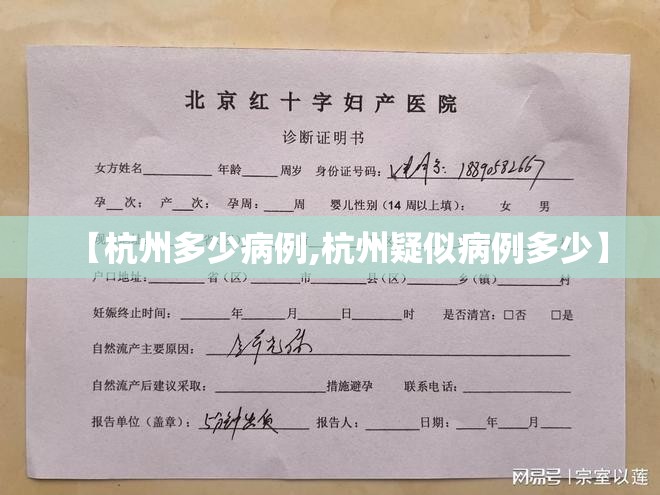 北京红十字妇产医院
诊断证明书
女方姓名 年龄 周岁 身份证号码： 18890582667
孕 次： 产 次： 孕周： 周 婴儿性别（14 周以上填）： 女 男
【杭州多少病例,杭州疑似病例多少】
户口地址： 省（区） 市 县（区） 乡（镇） 村
妊娠终止时间： 年 月 日 时 是否清宫：□否 □是
自然流产主要原因：
自然流产后建议采取： 措施避孕 联系电话：
报告单位（盖章）： 5分钟出货 报告人： 日期： 年 月
网易号 | 宗室以莲